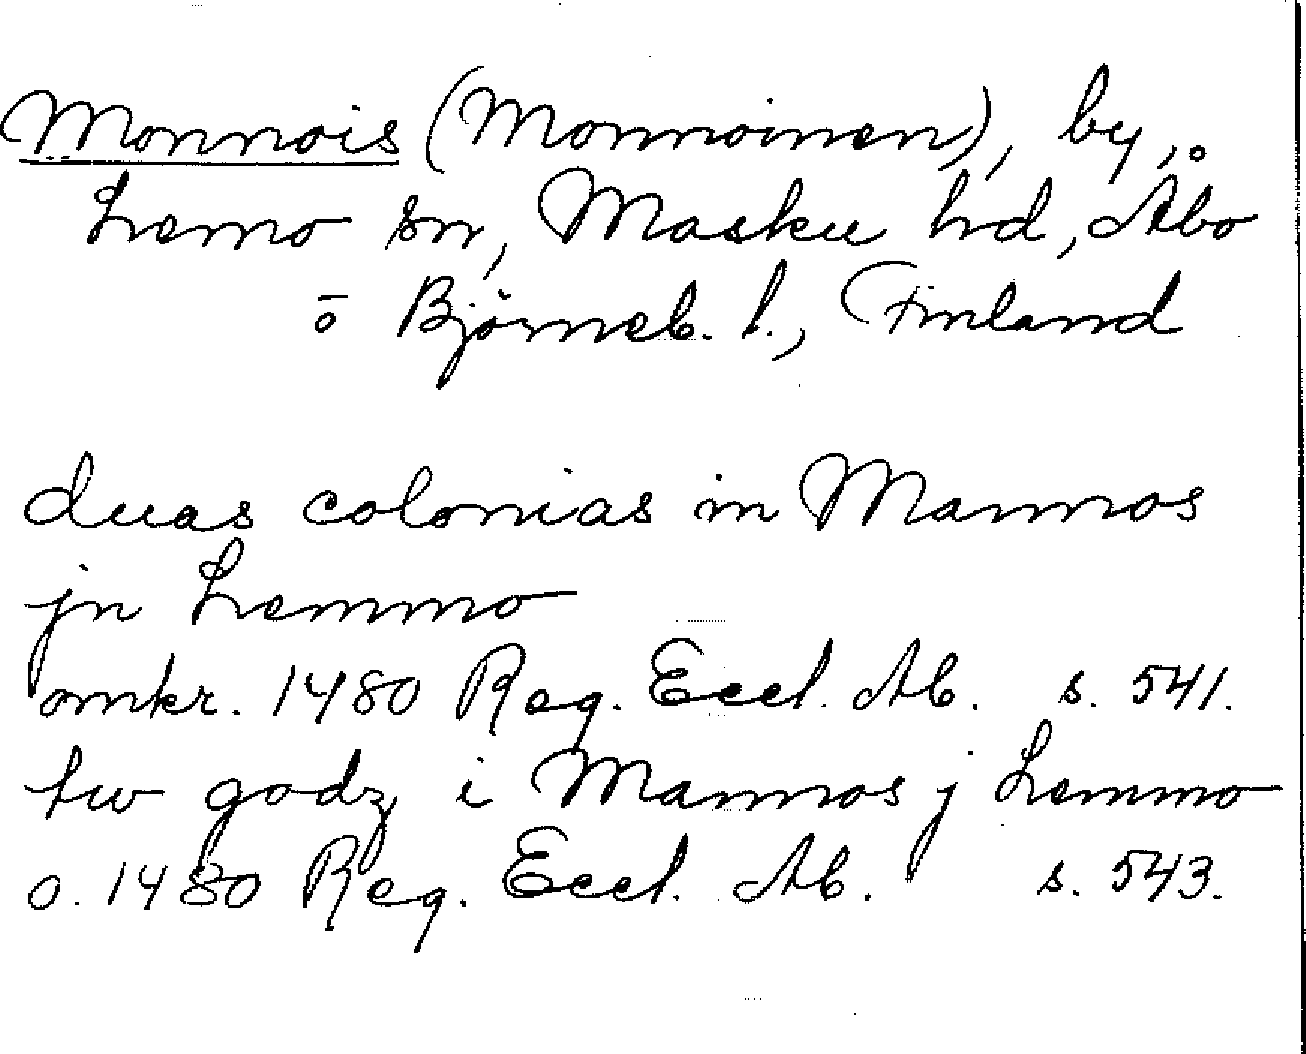 Monnois (Monnoinen), by,
Lemo sn, Masku hd, Åbo
o Björneb. l., Finland
duas colonias in Mannos
jn Lemmo
omkr. 1480 Reg. Eccl. Ab. s. 541.
tw godz i Mannos j Lemmo
o. 1480 Reg. Eccl. Ab. s. 543.